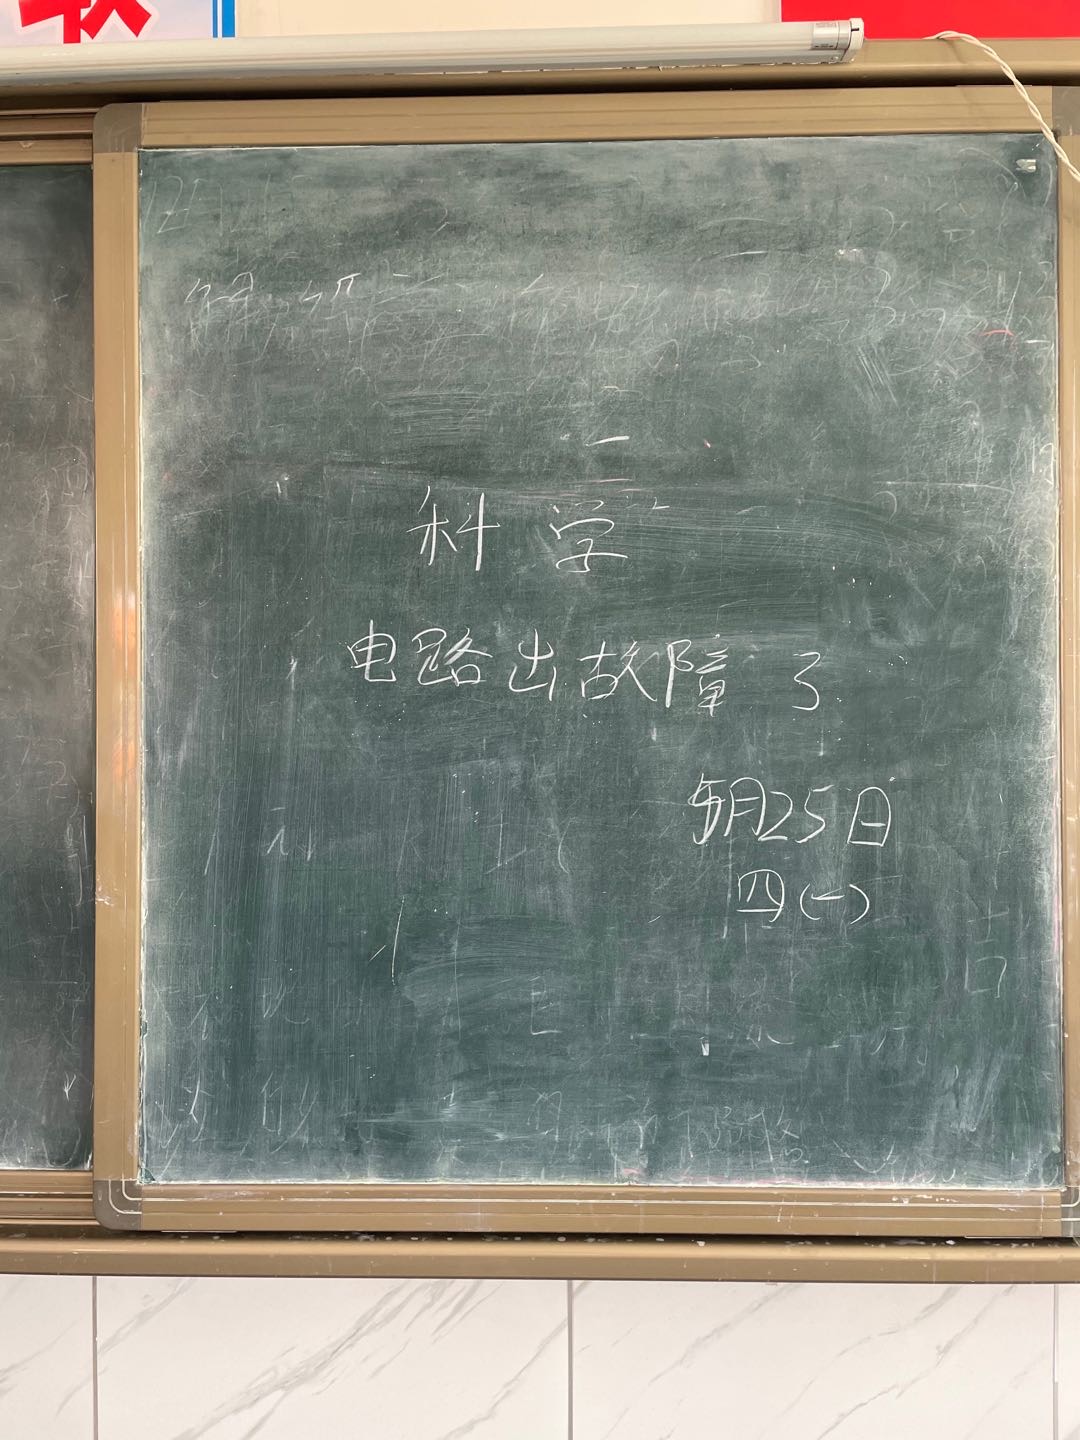 科学
电路出故障了
5月25日
四(一)